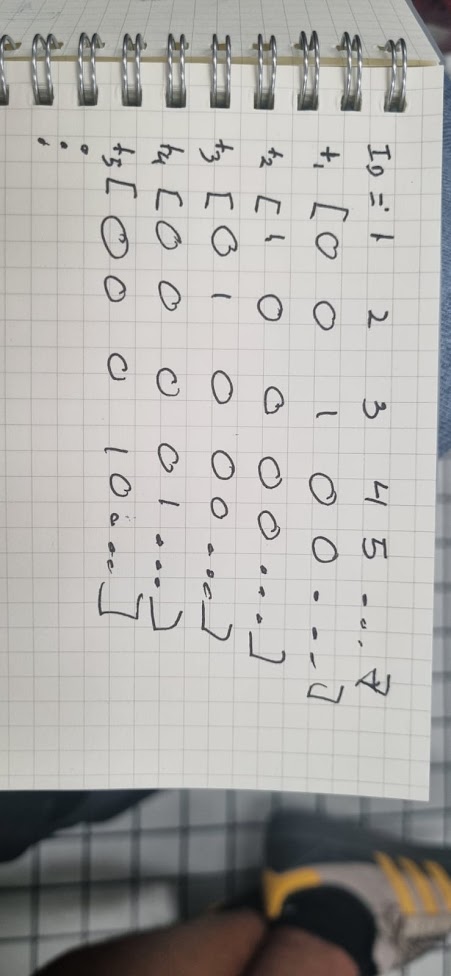 ID = 1 2 3 4 5 ....
t1 [0 0 1 0 0 ....]
t2 [1 0 0 0 0 ....]
t3 [0 1 0 0 0 ....]
t4 [0 0 0 0 1 ....]
t5 [0 0 0 1 0 ....]
⋮